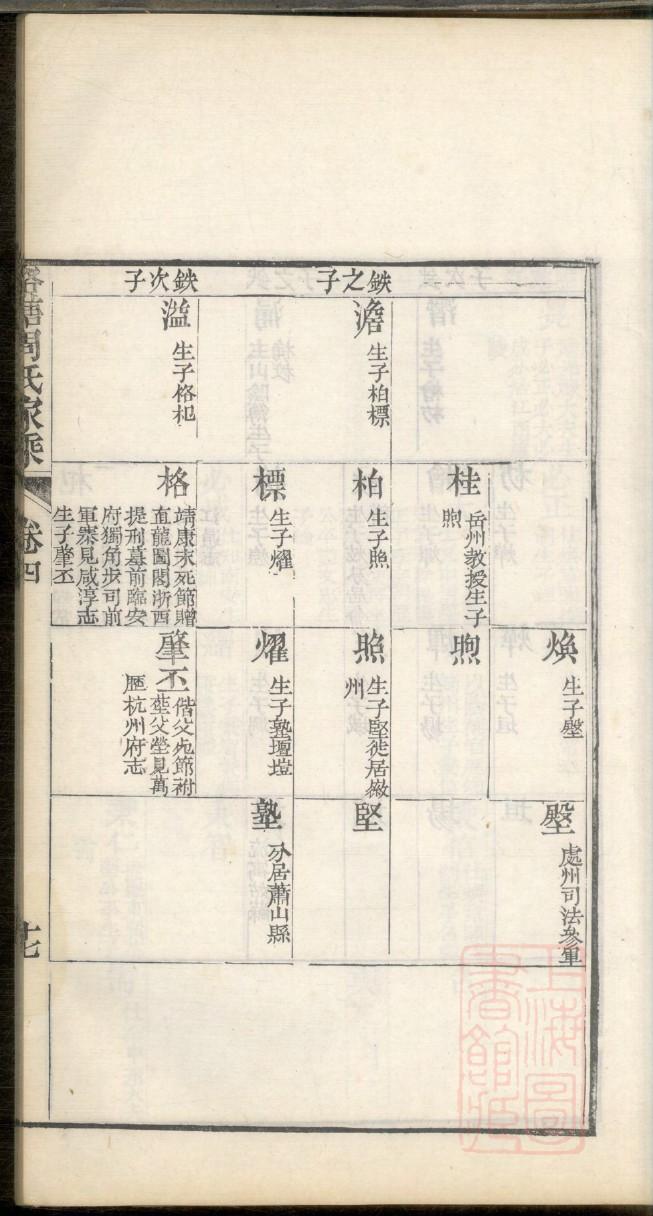 鉄之子
鉄次子
澹
生子柏標
溢
生子格杞
桂
岳州教授生子
煦
柏
生子照
標
生子燿
格
靖康末死節贈
直龍圖閣浙西
提刑墓前臨安
府獨角步司前
軍寨見咸淳志
生子肇丕
煥
生子壂
煦
照
生子堅徙居徽
州
燿
生子塾壇塏
肇丕
偕父死節祔
塟父塋見萬
歴杭州府志
壂
處州司法參軍
堅
塾
分居蕭山縣
周氏家乘
卷四
十七
上海圖書館藏